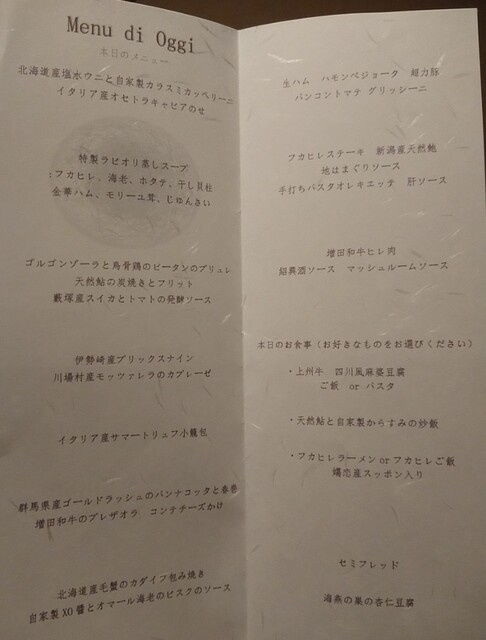 Menu di Oggi
本日のメニュー
北海道産塩水ウニと自家製カラスミカッペリーニ
イタリア産オセトラキャビアのせ
特製ラビオリ蒸しスープ
:フカヒレ、海老、ホタテ、干し貝柱
金華ハム、モリーユ茸、じゅんさい
ゴルゴンゾーラと烏骨鶏のピータンのブリュレ
天然鮎の炭焼きとフリット
藪塚産スイカとトマトの発酵ソース
伊勢崎産ブリックスナイン
川場村産モッツァレラのカプレーゼ
イタリア産サマートリュフ小籠包
群馬県産ゴールドラッシュのパンナコッタと春巻
増田和牛のブレザオラ コンテチーズかけ
北海道産毛蟹のカダイフ包み焼き
自家製XO醬とオマール海老のビスクのソース
生ハム ハモンベジョータ 超力豚
パンコントマテ グリッシーニ
フカヒレステーキ 新潟産天然鮑
地はまぐりソース
手打ちパスタオレキエッテ 肝ソース
増田和牛ヒレ肉
紹興酒ソース マッシュルームソース
本日のお食事（お好きなものをお選びください）
・上州牛 四川風麻婆豆腐
ご飯 or パスタ
・天然鮎と自家製からすみの炒飯
・フカヒレラーメンorフカヒレご飯
嬬恋産スッポン入り
セミフレッド
海燕の巣の杏仁豆腐